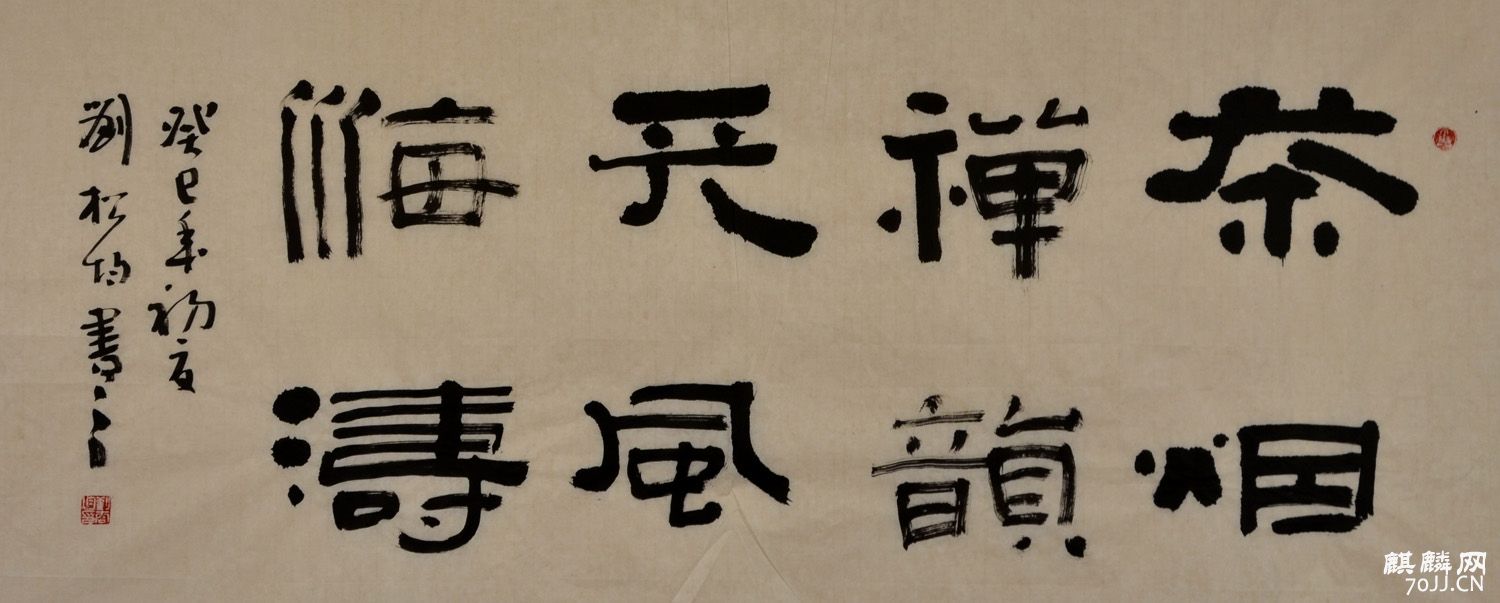 茶烟
禪韻
天風
海濤
癸巳年初夏
劉松書
麒麟网
70JJ.CN